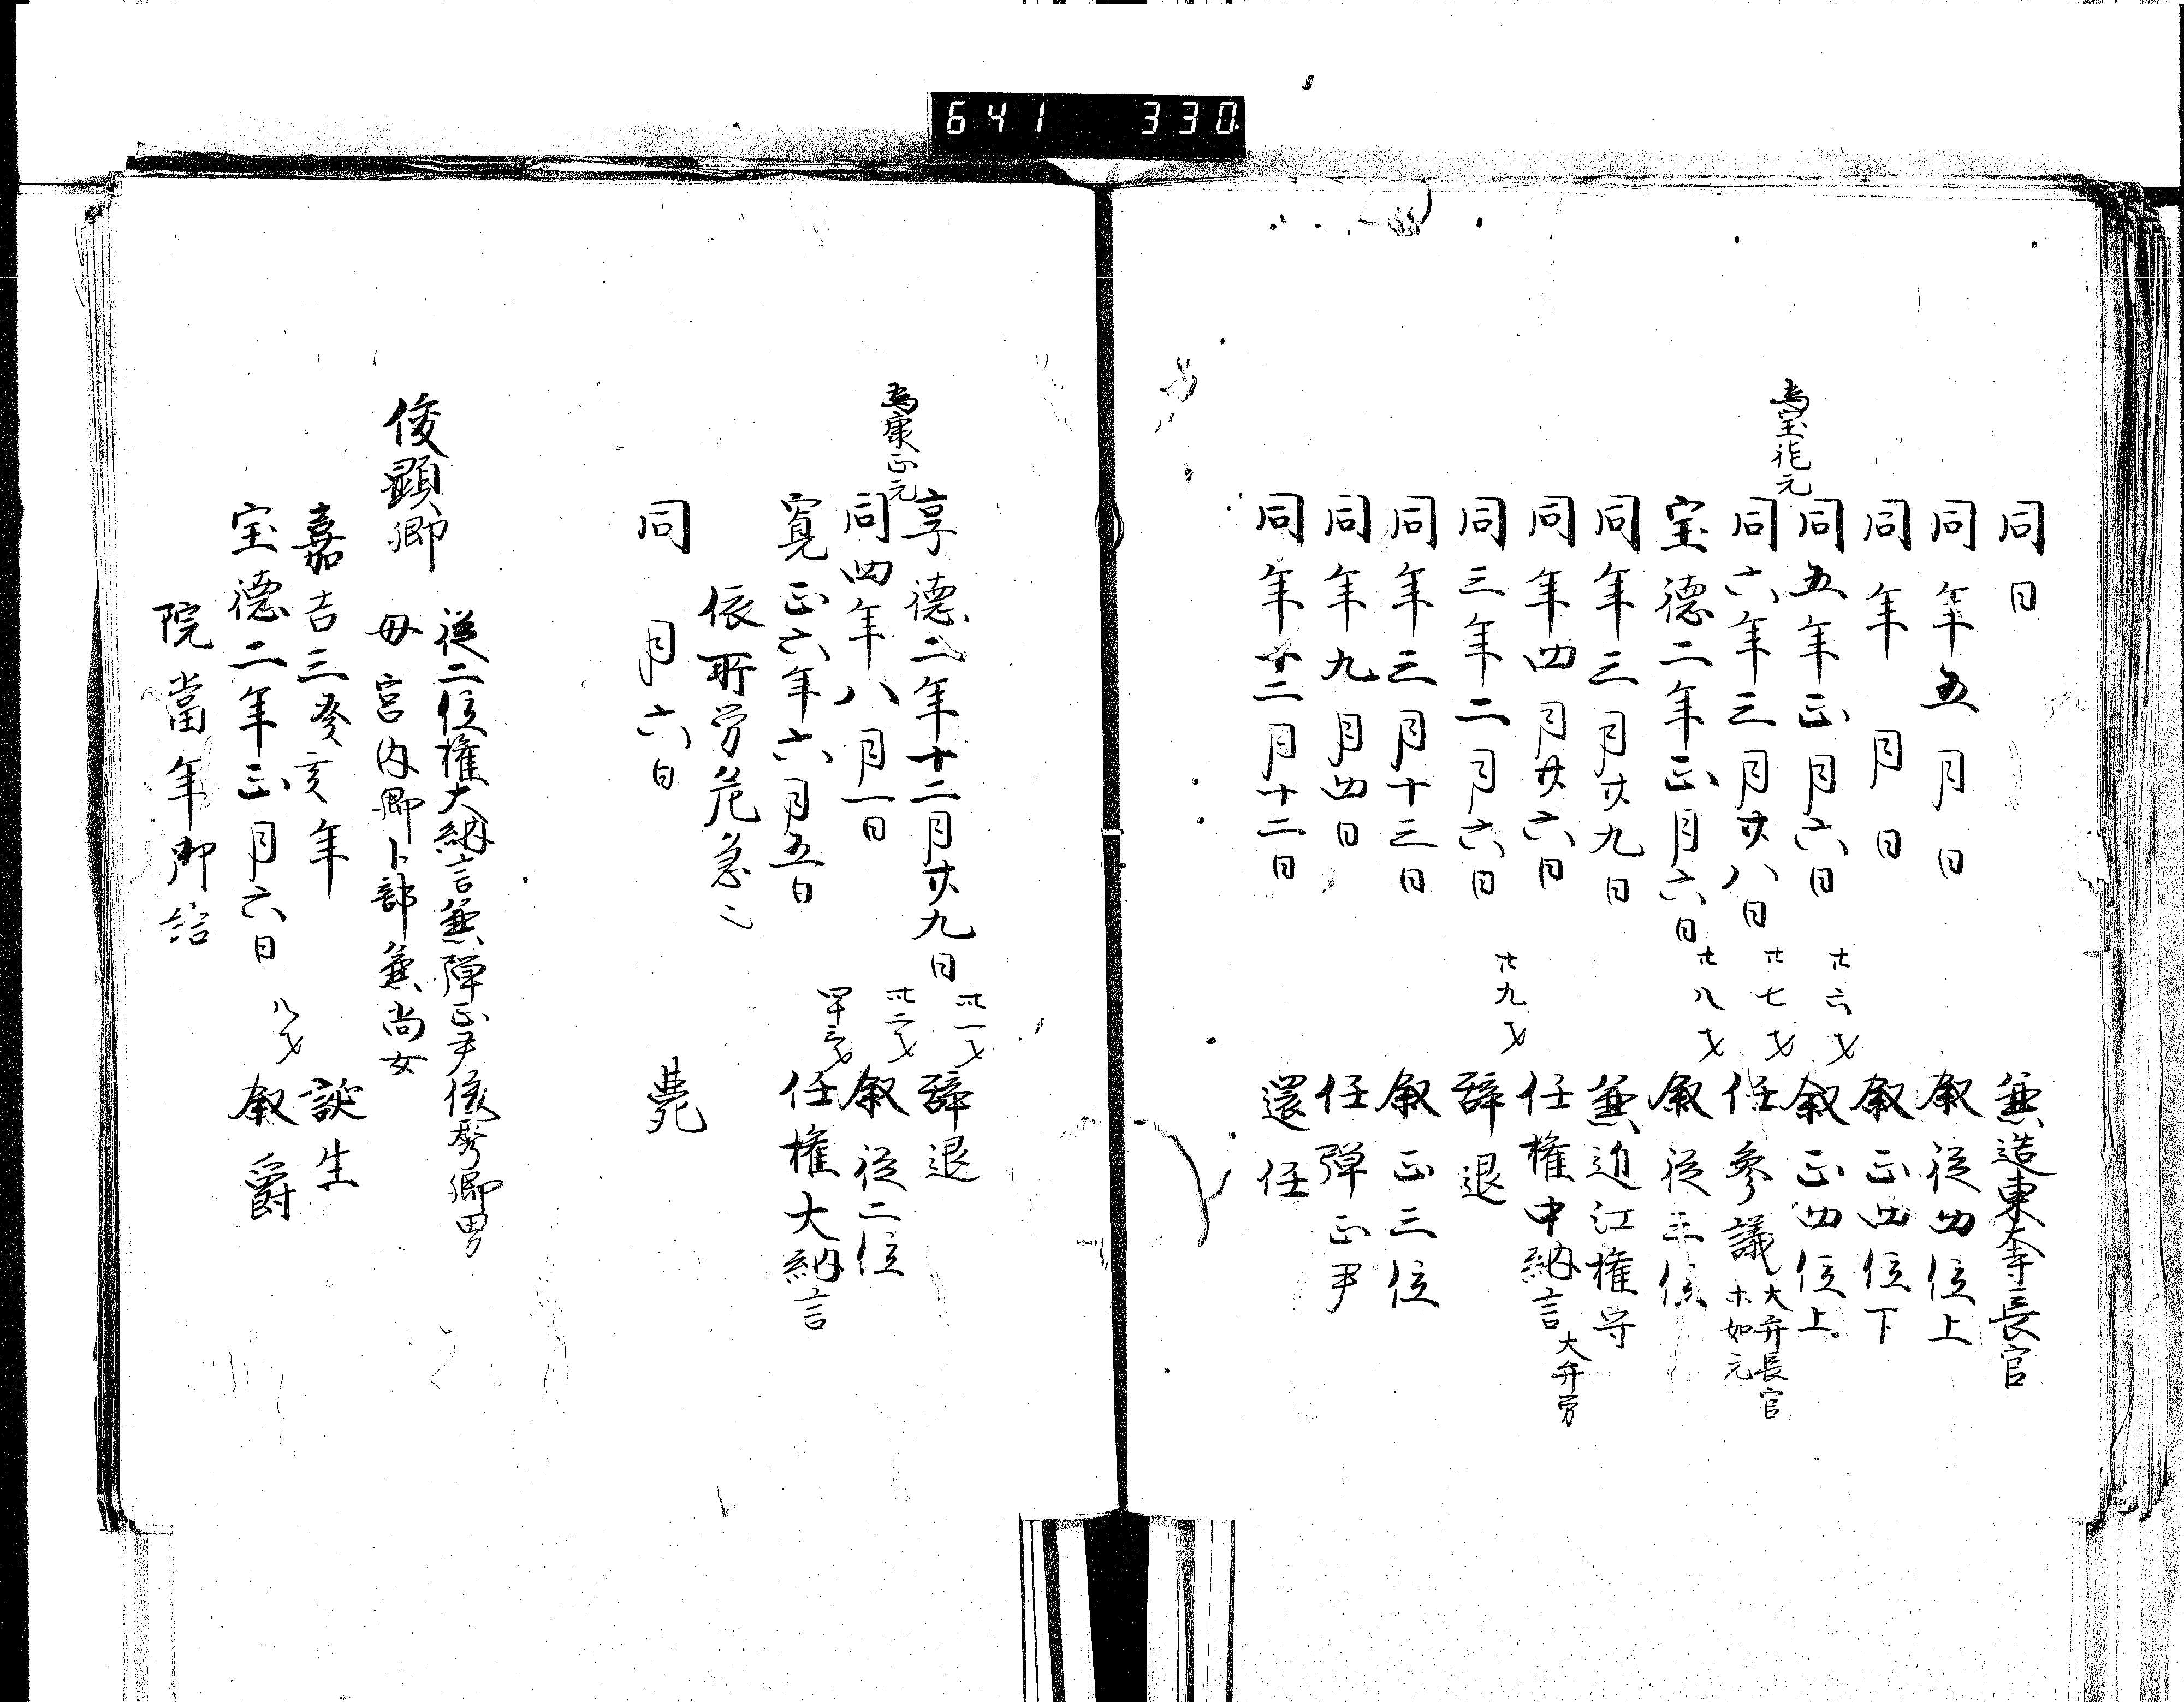 641 330
同日 兼造東大寺長官
同年五月日 叙従四位上
同年月日 叙正四位下
同五年正月六日 廿六才 叙正四位上
為宝徳元
同六年三月廿八日 廿七才 任参議 大弁長官 如元
宝徳二年正月六日 廿八才 叙従三位
同年三月廿九日 兼近江権守
同年四月廿六日 任権中納言 大弁労
同三年二月六日 廿九才 辞退
同年三月十三日 叙正三位
同年九月四日 任弾正尹
同年十二月十二日 還任
享徳二年十二月廿九日 卅一才 辞退
為康正元
同四年八月一日 卅二才 叙従二位
寛正六年六月五日 任権大納言
依所労危急之
同月六日 薨
俊顕卿 従二位権大納言兼弾正尹俊秀卿男
母宮内卿卜部兼尚女
嘉吉三癸亥年 誕生
宝徳二年正月六日 八才 叙爵
院當年御給